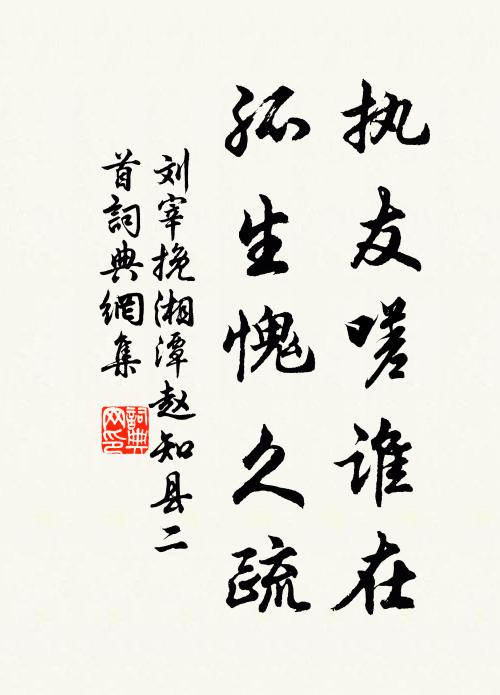 执友嗟谁在
孤生愧久疏
刘宰挽湘潭赵知县二
首詞典網集
詞典网印